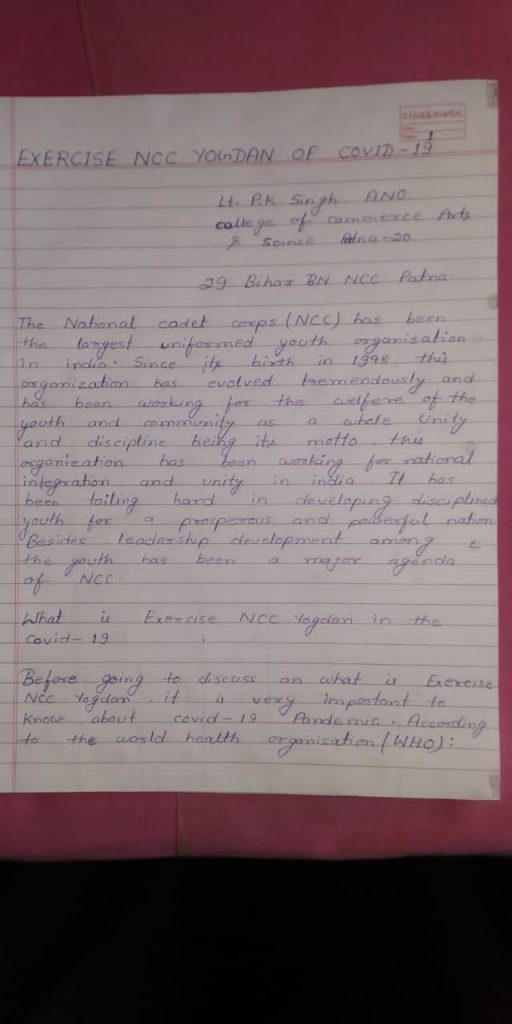 classmate
Date
Page 1
EXERCISE NCC YOGDAN OF COVID-19
Lt. P.K Singh ANO
college of commerce Arts
& Scince Patna-20
29 Bihar BN NCC Patna
The National cadet corps (NCC) has been
the largest uniformed youth organisation
in india. Since its birth in 1998 this
organization has evolved tremendously and
has been working for the welfere of the
youth and community as a whole Unity
and discipline being its motto. this
organization has been working for national
integration and unity in india It has
been toiling hard in developing disciplined
youth for a prosperous and powerful nation
Besides leadership development among
the youth has been a major agenda
of NCC.
What is Exercise NCC Yogdan in the
Covid-19
Before going to discuss on what is Exercise
NCC Yogdan. it is very important to
Know about covid-19 Pandemic. According
to the world health organisation (WHO):